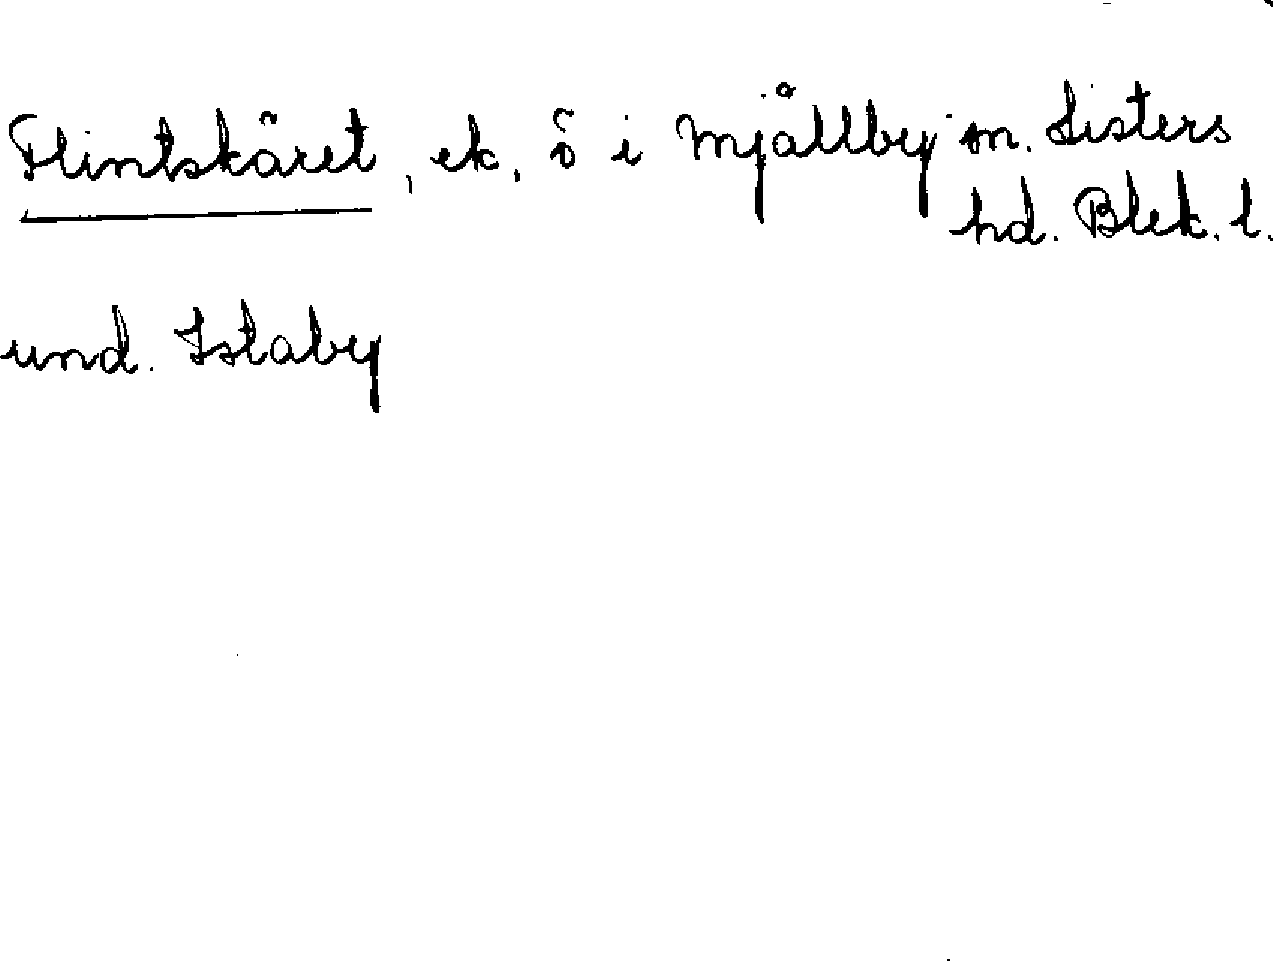 Flintskäret, ek. ö i Mjällby sn. Listers
hd. Blek. l.
und. Istaby